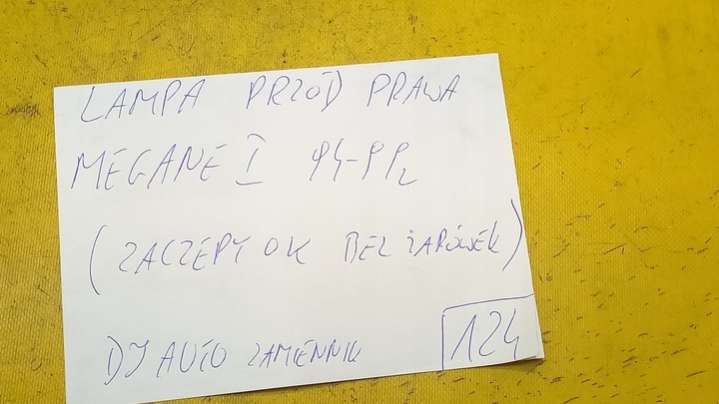 LAMPA PRZÓD PRAWA
MEGANE I 94-99r
(ZACZEPY OK BEZ ŻARÓWEK)
DJ AUTO ZAMIENNIK
124